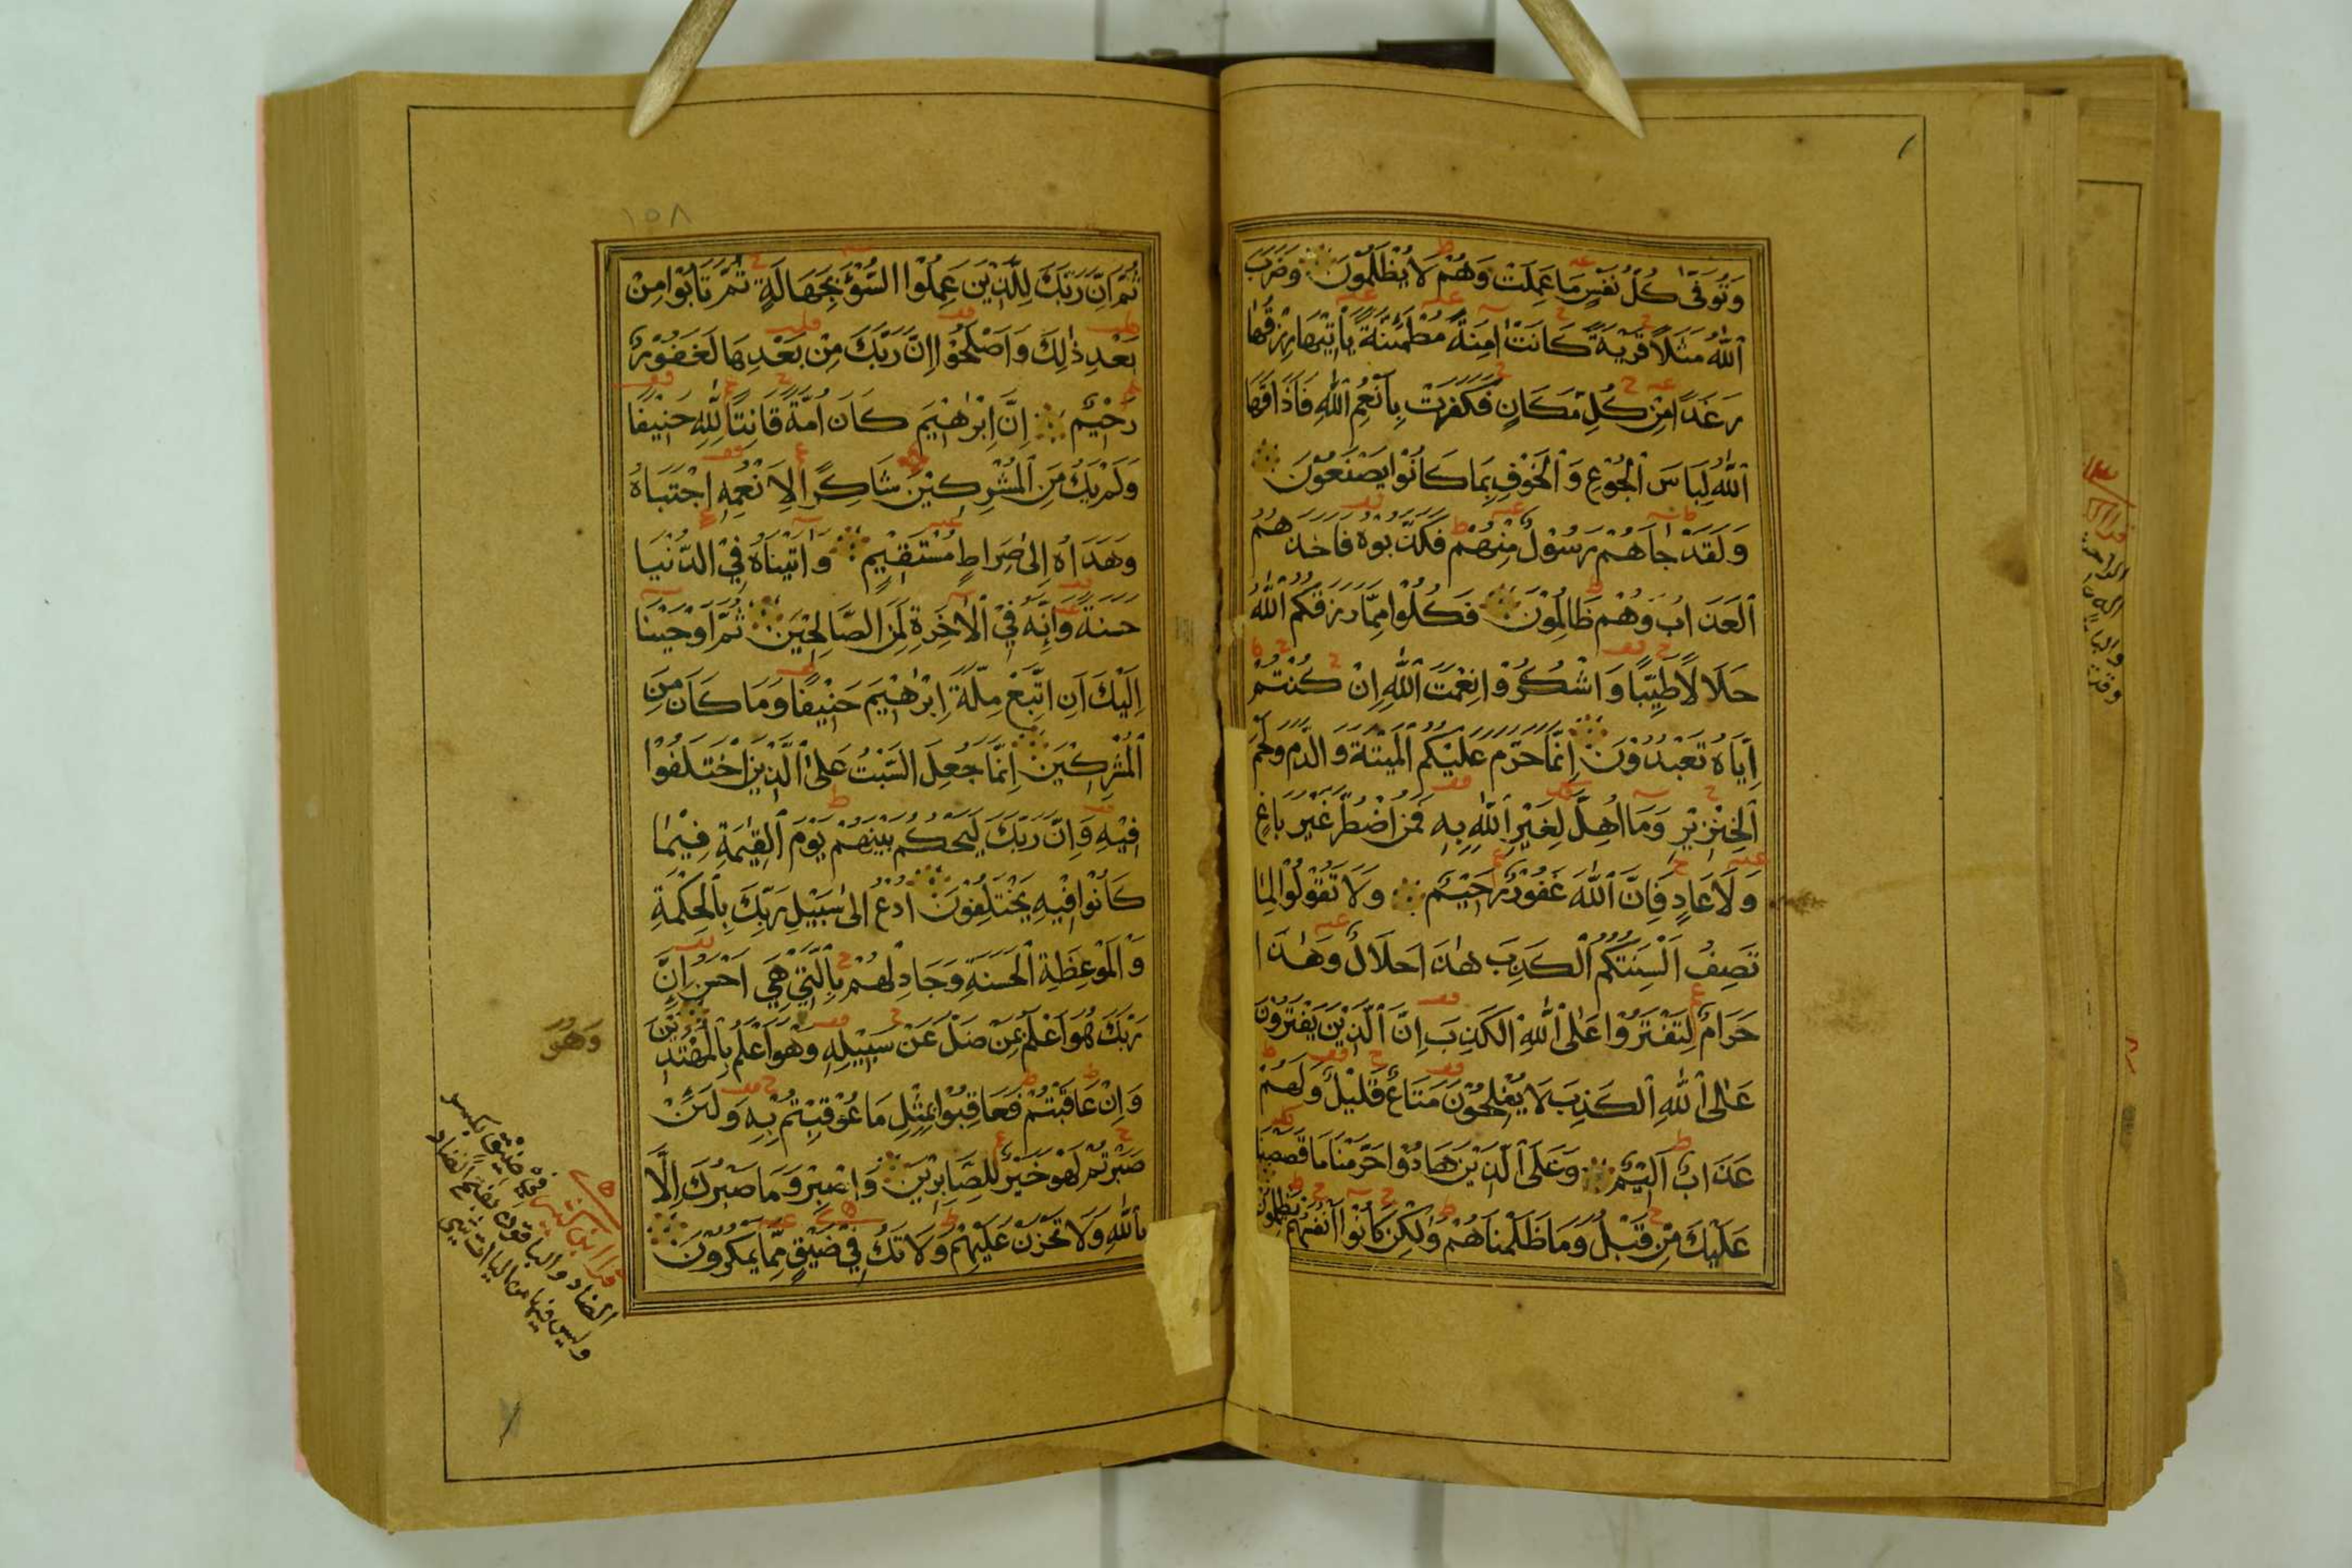 وَتُوَفّٰى كُلُّ نَفْسٍ مَا عَمِلَتْ وَهُمْ لَا يُظْلَمُوْنَ وَضَرَبَ
اللّٰهُ مَثَلًا قَرْيَةً كَانَتْ اٰمِنَةً مُطْمَئِنَّةً يَاْتِيْهَا رِزْقُهَا
رَغَدًا مِنْ كُلِّ مَكَانٍ فَكَفَرَتْ بِاَنْعُمِ اللّٰهِ فَاَذَاقَهَا
اللّٰهُ لِبَاسَ الْجُوْعِ وَالْخَوْفِ بِمَا كَانُوْا يَصْنَعُوْنَ
وَلَقَدْ جَاۤهُمْ رَسُوْلٌ مِنْهُمْ فَكَذَّبُوْهُ فَاَخَذَهُمُ
الْعَذَابُ وَهُمْ ظَالِمُوْنَ فَكُلُوْا مِمَّا رَزَقَكُمُ اللّٰهُ
حَلَالًا طَيِّبًا وَاشْكُرُوْا نِعْمَتَ اللّٰهِ اِنْ كُنْتُمْ
اِيَّاهُ تَعْبُدُوْنَ اِنَّمَا حَرَّمَ عَلَيْكُمُ الْمَيْتَةَ وَالدَّمَ وَلَحْمَ
الْخِنْزِيْرِ وَمَا اُهِلَّ لِغَيْرِ اللّٰهِ بِهِ فَمَنِ اضْطُرَّ غَيْرَ بَاغٍ
وَلَا عَادٍ فَاِنَّ اللّٰهَ غَفُوْرٌ رَحِيْمٌ وَلَا تَقُوْلُوْا لِمَا
تَصِفُ اَلْسِنَتُكُمُ الْكَذِبَ هٰذَا حَلَالٌ وَهٰذَا
حَرَامٌ لِتَفْتَرُوْا عَلَى اللّٰهِ الْكَذِبَ اِنَّ الَّذِيْنَ يَفْتَرُوْنَ
عَلَى اللّٰهِ الْكَذِبَ لَا يُفْلِحُوْنَ مَتَاعٌ قَلِيْلٌ وَلَهُمْ
عَذَابٌ اَلِيْمٌ وَعَلَى الَّذِيْنَ هَادُوْا حَرَّمْنَا مَا قَصَصْنَا
عَلَيْكَ مِنْ قَبْلُ وَمَا ظَلَمْنَاهُمْ وَلٰكِنْ كَانُوْا اَنْفُسَهُمْ يَظْلِمُوْنَ
١٥٨
ثُمَّ اِنَّ رَبَّكَ لِلَّذِيْنَ عَمِلُوا السُّوْءَ بِجَهَالَةٍ ثُمَّ تَابُوْا مِنْ
بَعْدِ ذٰلِكَ وَاَصْلَحُوْا اِنَّ رَبَّكَ مِنْ بَعْدِهَا لَغَفُوْرٌ
رَحِيْمٌ اِنَّ اِبْرٰهِيْمَ كَانَ اُمَّةً قَانِتًا لِلّٰهِ حَنِيْفًا
وَلَمْ يَكُ مِنَ الْمُشْرِكِيْنَ شَاكِرًا لِاَنْعُمِهِ اجْتَبَاهُ
وَهَدَاهُ اِلٰى صِرَاطٍ مُسْتَقِيْمٍ وَاٰتَيْنَاهُ فِي الدُّنْيَا
حَسَنَةً وَاِنَّهُ فِي الْاٰخِرَةِ لَمِنَ الصَّالِحِيْنَ ثُمَّ اَوْحَيْنَا
اِلَيْكَ اَنِ اتَّبِعْ مِلَّةَ اِبْرٰهِيْمَ حَنِيْفًا وَمَا كَانَ مِنَ
الْمُشْرِكِيْنَ اِنَّمَا جُعِلَ السَّبْتُ عَلَى الَّذِيْنَ اخْتَلَفُوْا
فِيْهِ وَاِنَّ رَبَّكَ لَيَحْكُمُ بَيْنَهُمْ يَوْمَ الْقِيٰمَةِ فِيْمَا
كَانُوْا فِيْهِ يَخْتَلِفُوْنَ اُدْعُ اِلٰى سَبِيْلِ رَبِّكَ بِالْحِكْمَةِ
وَالْمَوْعِظَةِ الْحَسَنَةِ وَجَادِلْهُمْ بِالَّتِيْ هِيَ اَحْسَنُ اِنَّ
رَبَّكَ هُوَ اَعْلَمُ بِمَنْ ضَلَّ عَنْ سَبِيْلِهِ وَهُوَ اَعْلَمُ بِالْمُهْتَدِيْنَ
وَهُوَ
وَاِنْ عَاقَبْتُمْ فَعَاقِبُوْا بِمِثْلِ مَا عُوْقِبْتُمْ بِهِ وَلَئِنْ
صَبَرْتُمْ لَهُوَ خَيْرٌ لِلصَّابِرِيْنَ وَاصْبِرْ وَمَا صَبْرُكَ اِلَّا
بِاللّٰهِ وَلَا تَحْزَنْ عَلَيْهِمْ وَلَا تَكُ فِيْ ضَيْقٍ مِمَّا يَمْكُرُوْنَ
قرا ابن كثير في ضيق بكسر
الضاد والباقون بفتح الضاد
وليس فيها من الياات شي